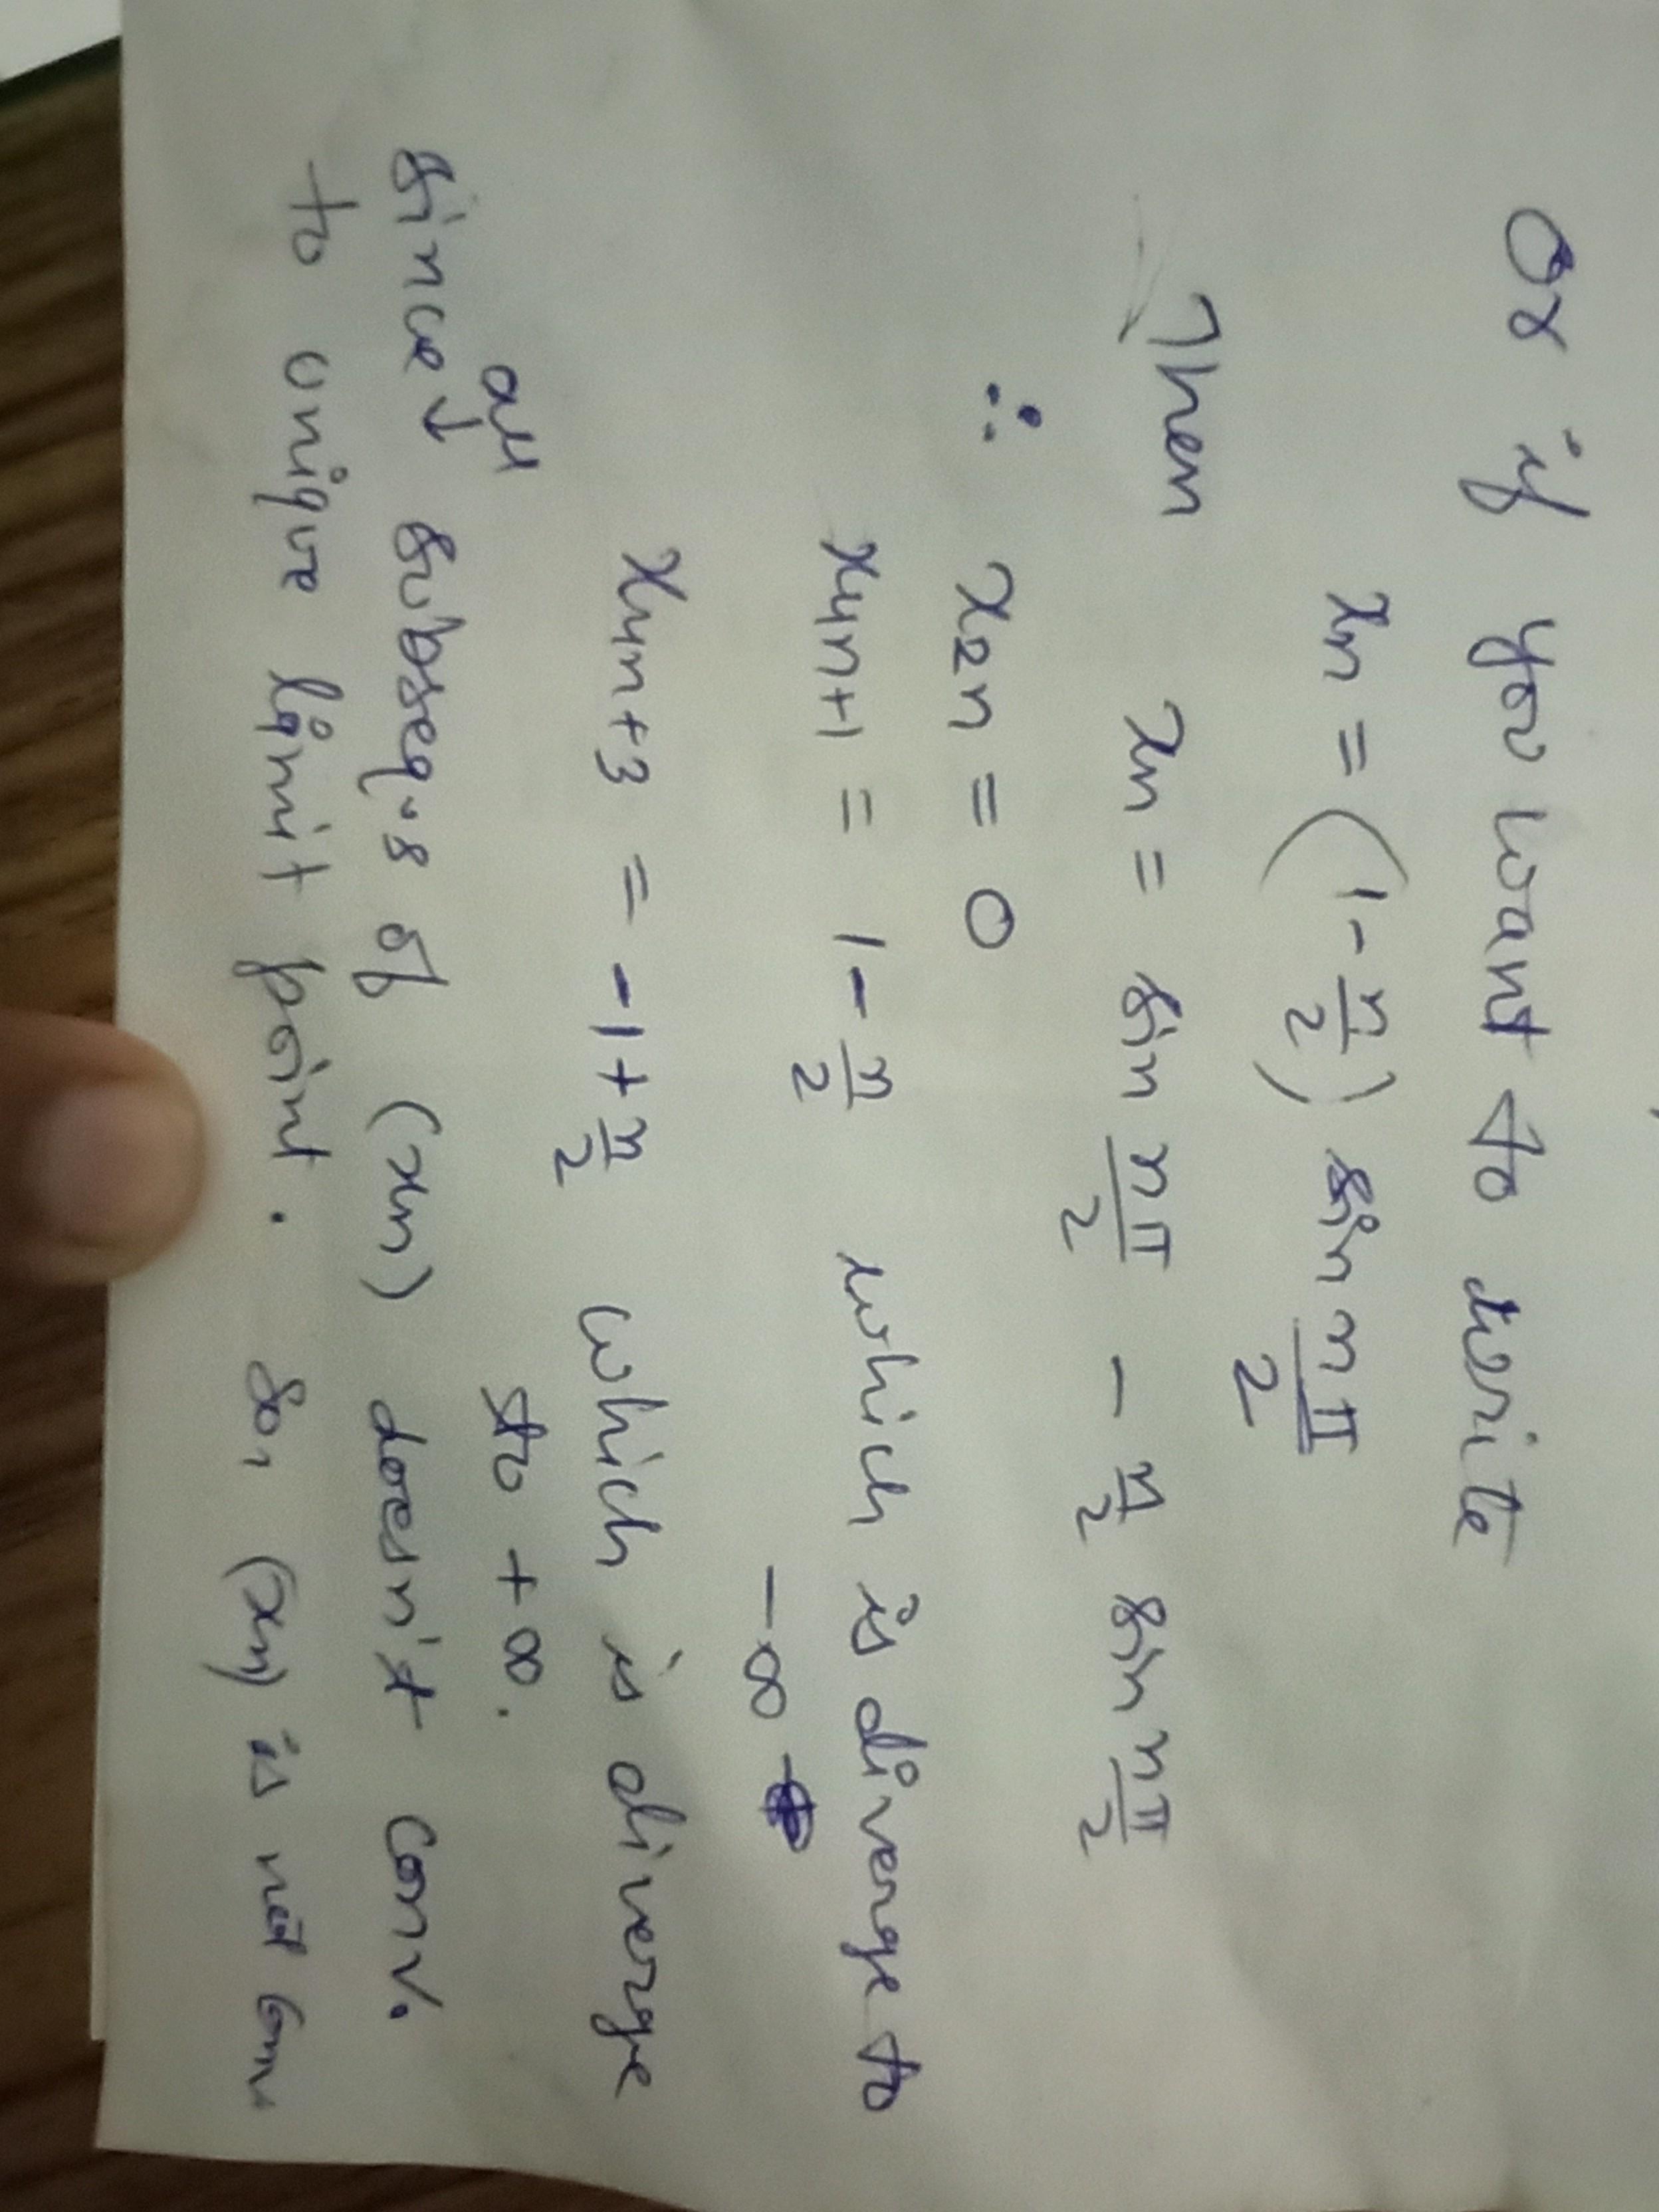 Or if you want to write
xn = (1 - n/2) sin nπ/2
Then xn = sin nπ/2 - n/2 sin nπ/2
∴ x2n = 0
x4n+1 = 1 - n/2 which is diverge to
-∞
x4n+3 = -1 + n/2 which is diverge
to +∞.
all
Since ↓ subseq.s of (xn) doesn't conv.
to unique limit point. So, (xn) is not conv